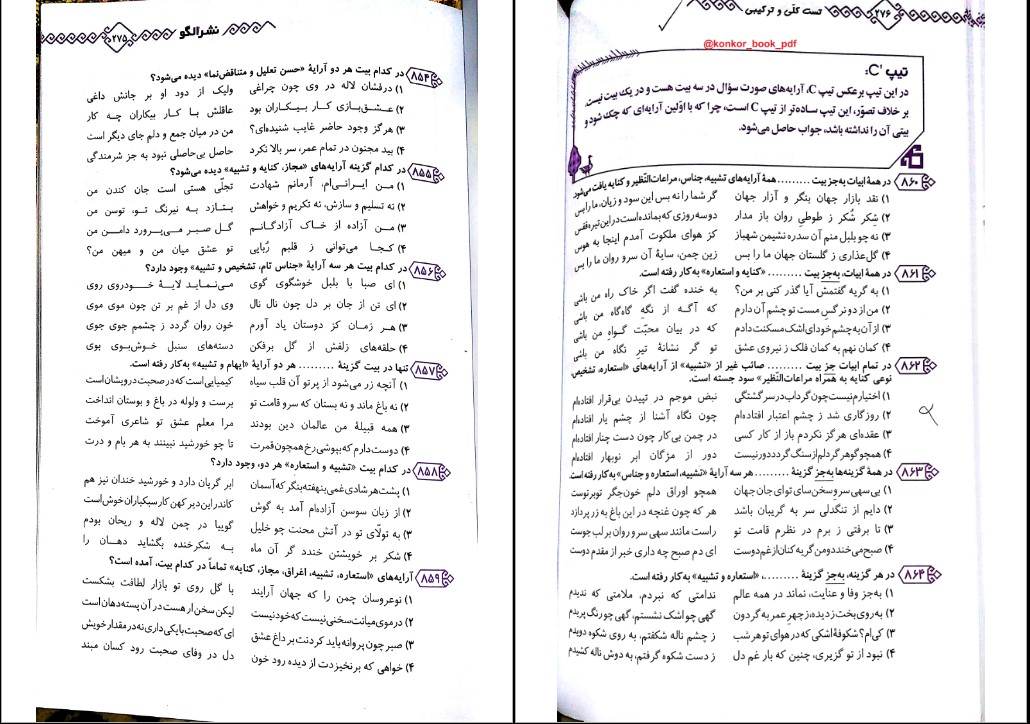 نشر الگو
۲۷۵
۸۵۴ در کدام بیت هر دو آرایهٔ «حسن تعلیل و متناقض‌نما» دیده می‌شود؟
۱) درفشان لاله در وی چون چراغی ولیک از دود او بر جانش داغی
۲) عشق‌بازی کار بیکاران بود عاقلش با کار بیکاران چه کار
۳) هرگز وجود حاضر غایب شنیده‌ای؟ من در میان جمع و دلم جای دیگر است
۴) بید مجنون در تمام عمر، سر بالا نکرد حاصل بی‌حاصلی نبود به جز شرمندگی
۸۵۵ در کدام گزینه آرایه‌های «مجاز، کنایه و تشبیه» دیده می‌شود؟
۱) من ایرانی‌ام، آرمانم شهادت تجلّی هستی است جان کندن من
۲) نه تسلیم و سازش، نه تکریم و خواهش بتازد به نیرنگ تو، توسن من
۳) من آزاده از خاک آزادگانم گل صبر می‌پرورد دامن من
۴) کجا می‌توانی ز قلبم رُبایی تو عشق میان من و میهن من؟
۸۵۶ در کدام بیت هر سه آرایهٔ «جناس تام، تشخیص و تشبیه» وجود دارد؟
۱) ای صبا با بلبل خوشگوی گوی می‌نماید لالهٔ خودروی روی
۲) ای تن از جان بر دل چون نال نال وی دل از غم بر تن چون موی موی
۳) هر زمان کز دوستان یاد آورم خون روان گردد ز چشمم جوی جوی
۴) حلقه‌های زلفش از گل برفکن دسته‌های سنبل خوش‌بوی بوی
۸۵۷ تنها در بیت گزینهٔ ......... هر دو آرایهٔ «ایهام و تشبیه» به‌کار رفته است.
۱) آنچه زر می‌شود از پرتو آن قلب سیاه کیمیایی است که در صحبت درویشان است
۲) نه باغ ماند و نه بستان که سرو قامت تو برست و ولوله در باغ و بوستان انداخت
۳) همه قبیلهٔ من عالمان دین بودند مرا معلم عشق تو شاعری آموخت
۴) دوست دارم که بپوشی رخ همچون قمرت تا چو خورشید نبینند به هر بام و درت
۸۵۸ در کدام بیت «تشبیه و استعاره» هر دو، وجود دارد؟
۱) پشت هر شادی غمی بنهفته بنگر که آسمان ابر گریان دارد و خورشید خندان نیز هم
۲) از زبان سوسن آزاده‌ام آمد به گوش کاندر این دیر کهن کار سبکباران خوش است
۳) به تولّای تو در آتش محنت چو خلیل گوییا در چمن لاله و ریحان بودم
۴) شکر بر خویشتن خندد گر آن ماه به شکرخنده بگشاید دهان را
۸۵۹ آرایه‌های «استعاره، تشبیه، اغراق، مجاز، کنایه» تماماً در کدام بیت، آمده است؟
۱) نوعروسان چمن را که جهان آرایند با گل روی تو بازار لطافت بشکست
۲) در موی میانت سخنی نیست که خود نیست لیکن سخن ار هست در آن پسته‌دهان است
۳) صبر چون پروانه باید کردنت بر داغ عشق ای که صحبت با یکی داری نه در مقدار خویش
۴) خواهی که برنخیزدت از دیده رود خون دل در وفای صحبت رود کسان مبند
تست کلّی و ترکیبی
۲۷۶
@konkor_book_pdf
تیپ C′:
در این تیپ برعکس تیپ C، آرایه‌های صورت سؤال در سه بیت هست و در یک بیت نیست.
بر خلاف تصوّر، این تیپ ساده‌تر از تیپ C است، چرا که با اوّلین آرایه‌ای که چک شود و
بیتی آن را نداشته باشد، جواب حاصل می‌شود.
۸۶۰ در همهٔ ابیات به‌جز بیت ......... همهٔ آرایه‌های تشبیه، جناس، مراعات‌النّظیر و کنایه یافت می‌شود
۱) نقد بازار جهان بنگر و آزار جهان گر شما را نه بس این سود و زیان، ما را بس
۲) شِکر شُکر ز طوطیِ روان باز مدار دو سه روزی که بمانده است در این تیره قفس
۳) نه چو بلبل منم آن سدره نشیمن شهباز کز هوای ملکوت آمدم اینجا به هوس
۴) گل‌عذاری ز گلستان جهان ما را بس زین چمن، سایهٔ آن سرو روان ما را بس
۸۶۱ در همهٔ ابیات، به‌جز بیت ......... «کنایه و استعاره» به‌کار رفته است.
۱) به گریه گفتمش آیا گذر کنی بر من؟ به خنده گفت اگر خاک راه من باشی
۲) من از دو نرگس مست تو چشم آن دارم که آگه از نگهِ گاه‌گاه من باشی
۳) از آن به چشم خود ای اشک مسکنت دادم که در بیان محبّت گواه من باشی
۴) کمان نهم به کمان فلک ز نیروی عشق تو گر نشانهٔ تیر نگاه من باشی
۸۶۲ در تمام ابیات جز بیت ......... صائب غیر از «تشبیه» از آرایه‌های «استعاره، تشخیص،
نوعی کنایه به همراه مراعات‌النّظیر» سود جسته است.
۱) اختیارم نیست چون گرداب در سرگشتگی نبض موجم در تپیدن بی‌قرار افتاده‌ام
۲) روزگاری شد ز چشم اعتبار افتاده‌ام چون نگاه آشنا از چشم یار افتاده‌ام
۳) عقده‌ای هرگز نکردم باز از کار کسی در چمن بی‌کار چون دست چنار افتاده‌ام
۴) همچو گوهر گر دلم از سنگ گردد دور نیست دور از مژگان ابر نوبهار افتاده‌ام
۸۶۳ در همهٔ گزینه‌ها به‌جز گزینهٔ ......... هر سه آرایهٔ «تشبیه، استعاره و جناس» به‌کار رفته است.
۱) بی سهی سرو سخن‌سای تو ای جان جهان همچو اوراق دلم خون‌جگر توبرتوست
۲) دایم از تنگدلی سر به گریبان باشد هر که چون غنچه در این باغ به زر پردازد
۳) تا برفتی ز برم در نظرم قامت تو راست مانند سهی سرو روان بر لب جوست
۴) صبح می‌خندد و من گریه کنان از غم دوست ای دم صبح چه داری خبر از مقدم دوست
۸۶۴ در هر گزینه، به‌جز گزینهٔ .........، «استعاره و تشبیه» به‌کار رفته است.
۱) به‌جز وفا و عنایت، نماند در همه عالم ندامتی که نبردم، ملامتی که ندیدم
۲) به روی بخت ز دیده، ز چهر عمر به گردون گهی چو اشک نشستم، گهی چو رنگ پریدم
۳) کی‌ام؟ شکوفهٔ اشکی که در هوای تو هر شب ز چشم ناله شکفتم، به روی شکوه دویدم
۴) نبود از تو گزیری، چنین که بار غم دل ز دست شکوه گرفتم، به دوش ناله کشیدم